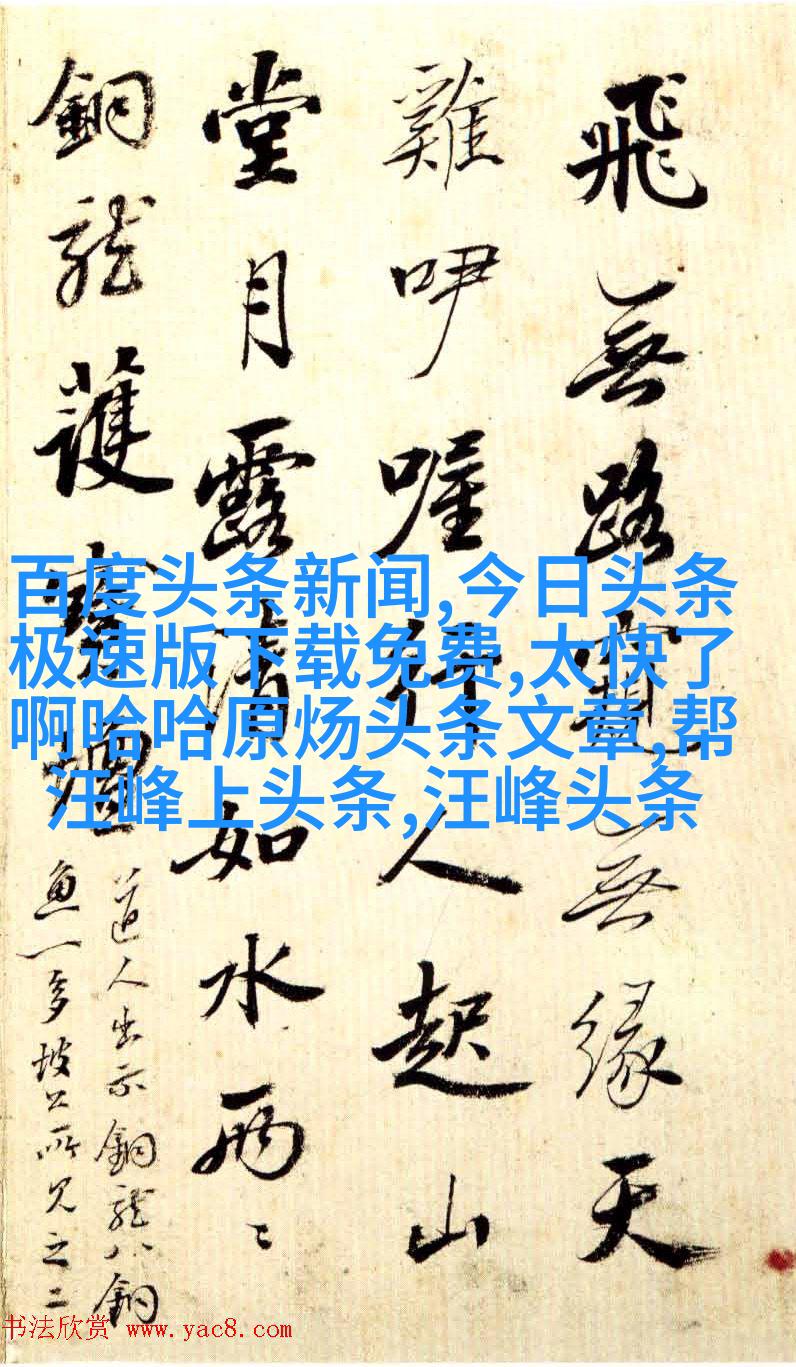 飛無路無緣天
雞咿喔行人起山
堂月露清如水兩〻
銅龍護寶壇
道人出示銅龍八銅
魚一多坡公所見之二
百度头条新闻,今日头条
极速版下载免费,太快了
啊哈哈原炀头条文章,帮
汪峰上头条,汪峰头条
书法欣赏 www.yac8.com